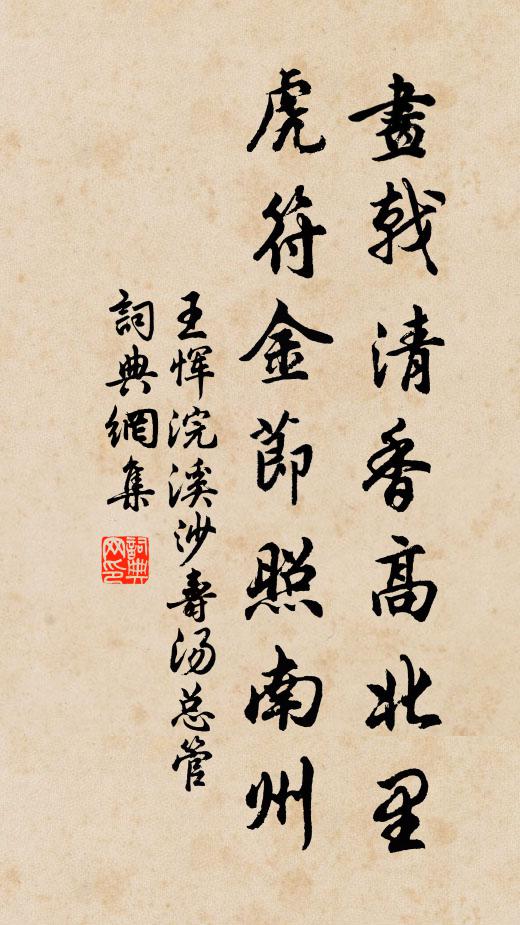 畫戟清香高北里
虎符金節照南州
王恽浣溪沙壽汤总管
詞典網集
詞典
网印